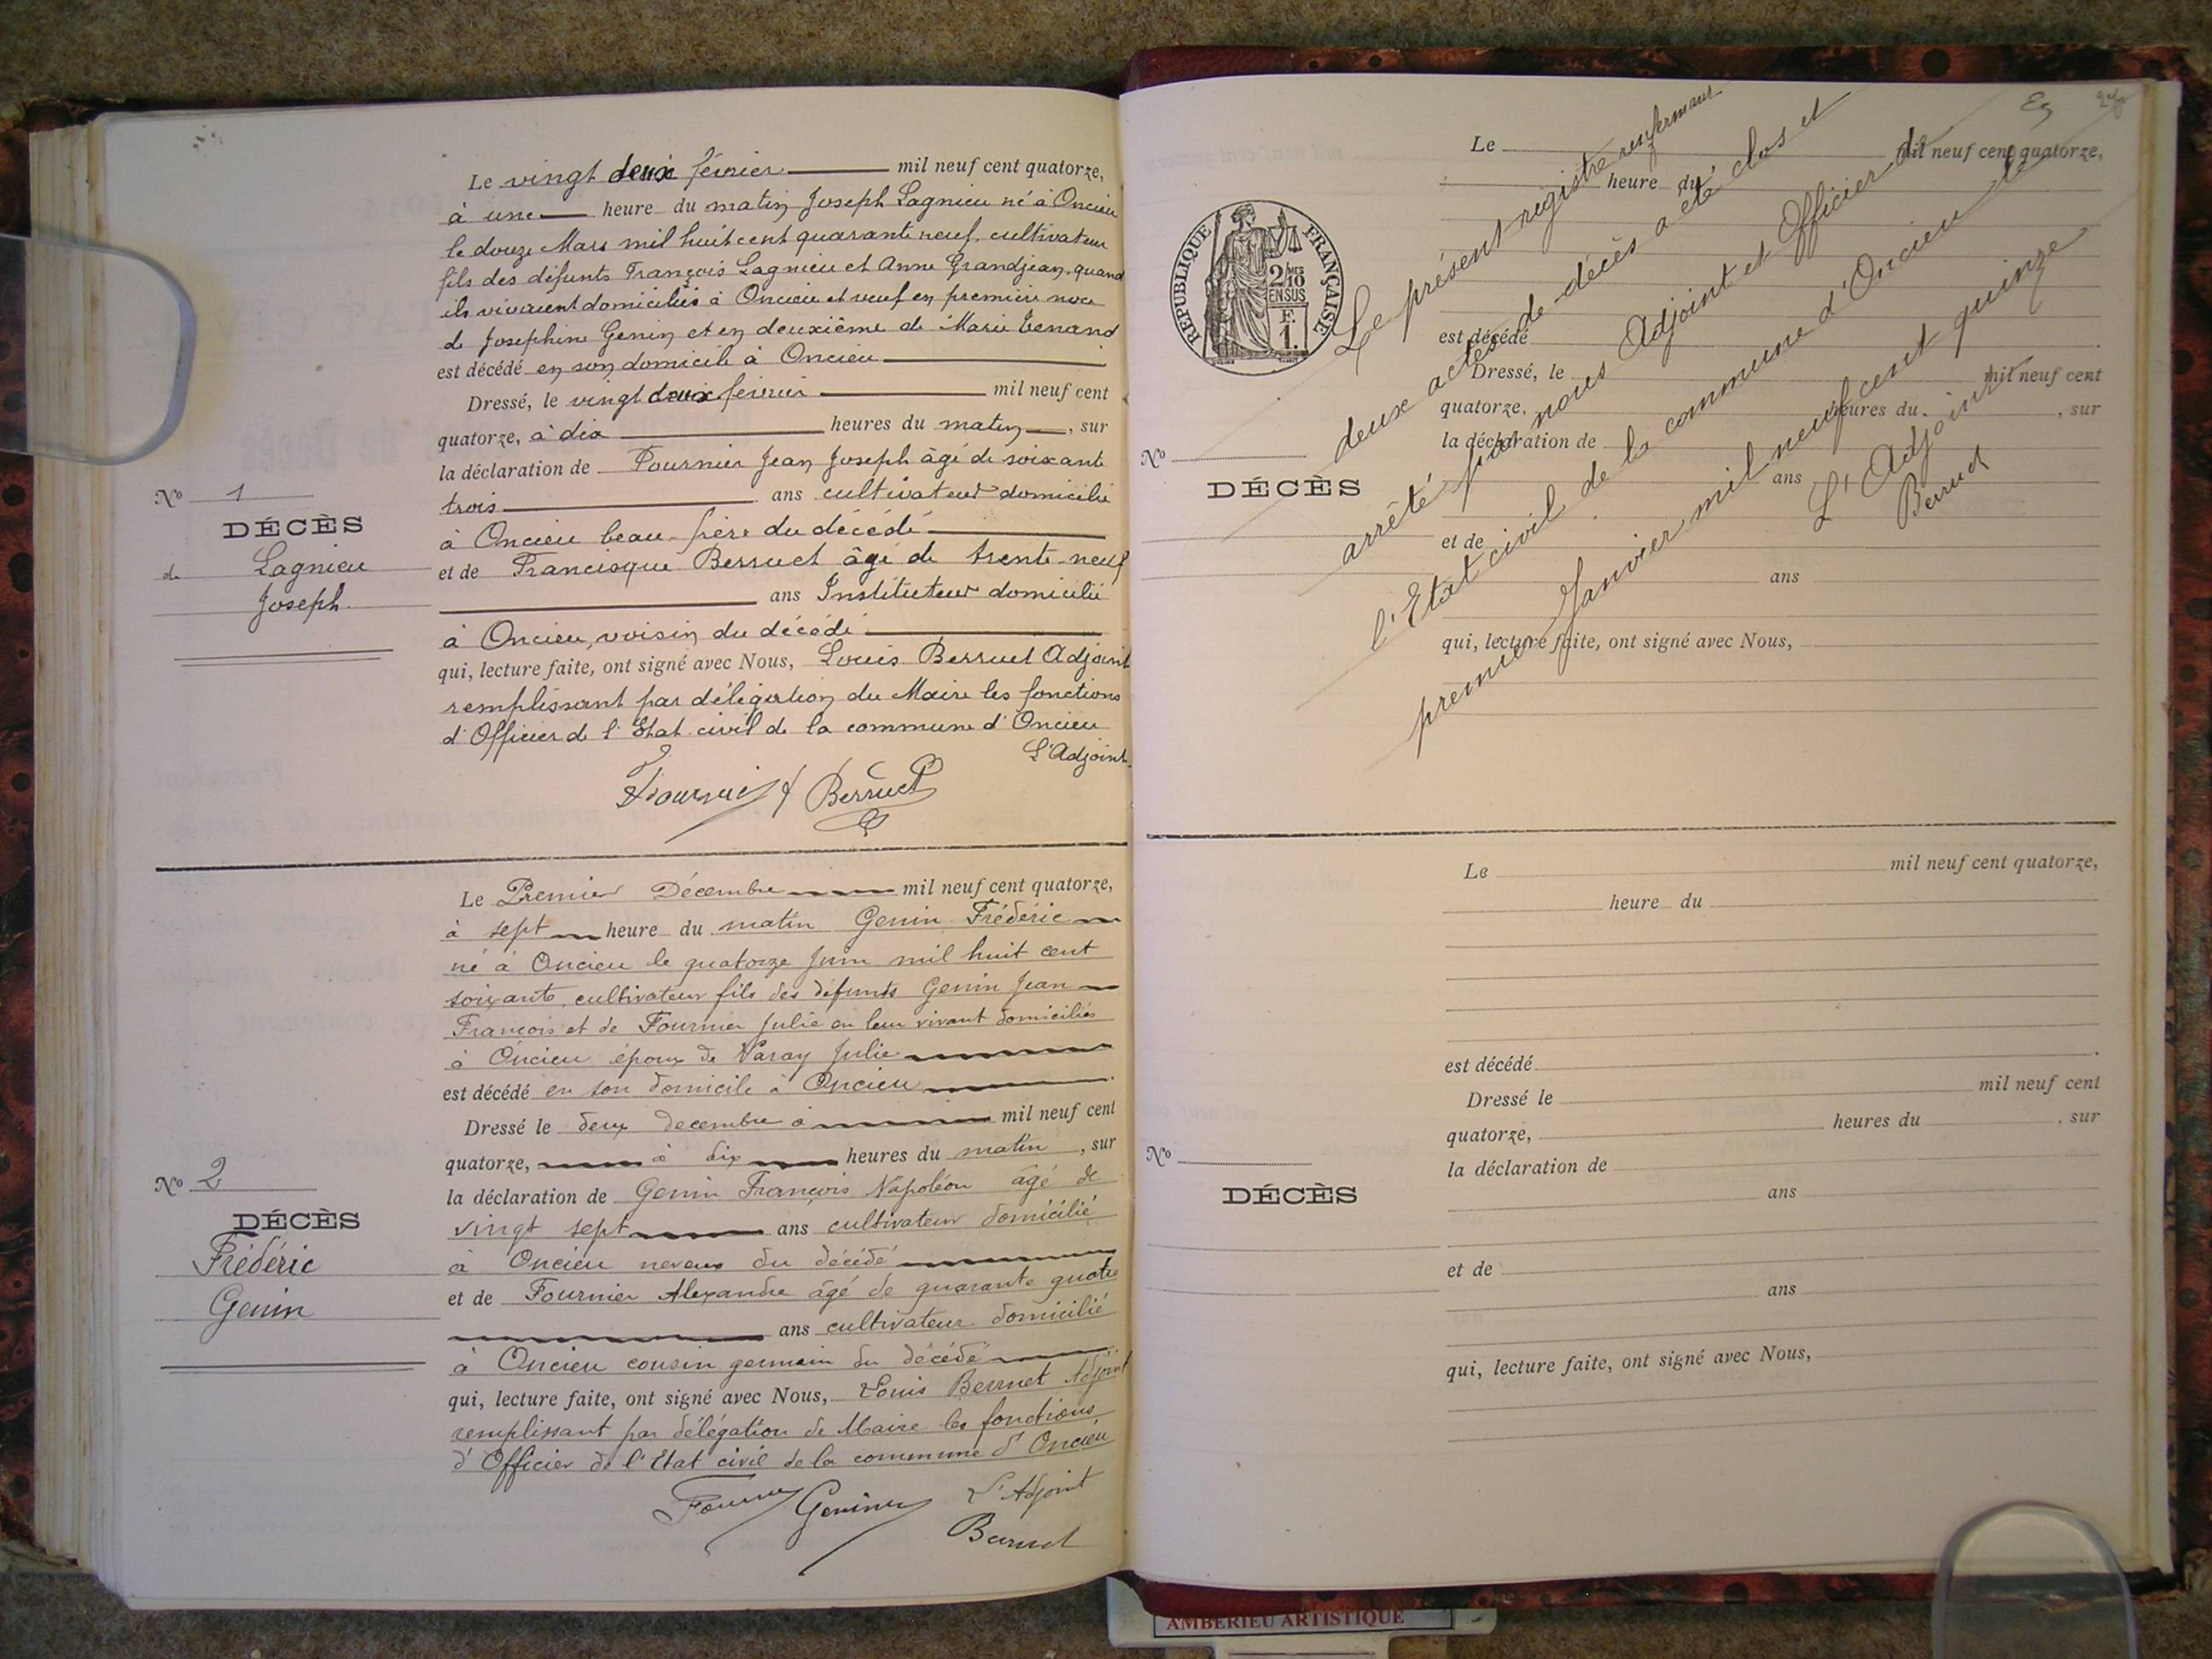 Le vingt deux février mil neuf cent quatorze,
à une heure du matin Joseph Lagnieu né à Oncieu
le douze Mars mil huit cent quarante neuf, cultivateur
fils des défunts François Lagnieu et Anne Grandjean, quand
ils vivaient domiciliés à Oncieu et veuf en première noce
de Josephine Genin et en deuxième de Marie Tenand
est décédé en son domicile à Oncieu
Dressé, le vingt deux février mil neuf cent
quatorze, à dix heures du matin, sur
la déclaration de Fournier Jean Joseph âgé de soixante
trois ans cultivateur domicilié
à Oncieu beau-frère du décédé
et de Francisque Berruet âgé de trente-neuf
ans Instituteur domicilié
à Oncieu, voisin du décédé
qui, lecture faite, ont signé avec Nous, Louis Berruet Adjoint
remplissant par délégation du Maire les fonctions
d'Officier de l'Etat civil de la commune d'Oncieu
L'Adjoint
Fournier Berruet
No 1
DÉCÈS
de Lagnieu
Joseph
Le Premier Décembre mil neuf cent quatorze,
à sept heure du matin Genin Frédéric
né à Oncieu le quatorze Juin mil huit cent
soixante, cultivateur fils des défunts Genin Jean
François et de Fournier Julie en leur vivant domiciliés
à Oncieu époux de Varay Julie
est décédé en son domicile à Oncieu
Dressé le deux decembre à mil neuf cent
quatorze, à dix heures du matin, sur
la déclaration de Genin François Napoléon âgé de
vingt sept ans cultivateur domicilié
à Oncieu neveux du décédé
et de Fournier Alexandre âgé de quarante quatre
ans cultivateur domicilié
à Oncieu cousin germain du décédé
qui, lecture faite, ont signé avec Nous, Louis Berruet Adjoint
remplissant par délégation de Maire les fonctions
d'Officier de l'Etat civil de la commune d'Oncieu
Fournier Genin L'Adjoint
Berruet
No 2
DÉCÈS
Frédéric
Genin
RÉPUBLIQUE FRANÇAISE
2/10 MES
EN SUS
F.
1.
Le mil neuf cent quatorze,
heure du
est décédé
Dressé, le mil neuf cent
quatorze, heures du , sur
la déclaration de
ans
et de
ans
qui, lecture faite, ont signé avec Nous,
No
DÉCÈS
Le présent registre renfermant
deux actes de décès a été clos et
arrêté par nous Adjoint et Officier de
l'Etat civil de la commune d'Oncieu le
premier Janvier mil neuf cent quinze
L'Adjoint
Berruet
Le mil neuf cent quatorze,
heure du
est décédé
Dressé le mil neuf cent
quatorze, heures du , sur
la déclaration de
ans
et de
ans
qui, lecture faite, ont signé avec Nous,
No
DÉCÈS
AMBERIEU ARTISTIQUE